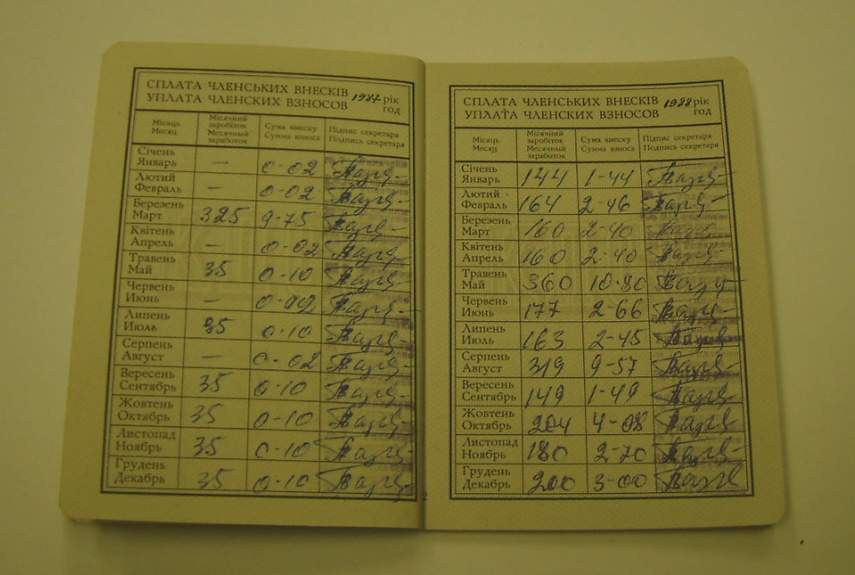 СПЛАТА ЧЛЕНСЬКИХ ВНЕСКІВ 1987 рік
УПЛАТА ЧЛЕНСКИХ ВЗНОСОВ год
Місяць Місячний заробіток Сума внеску Підпис секретаря
Месяц Месячный заработок Сумма взноса Подпись секретаря
Січень
Январь — 0-02
Лютий
Февраль — 0-02
Березень
Март 325 9-75
Квітень
Апрель — 0-02
Травень
Май 35 0-10
Червень
Июнь —
Липень
Июль 35 0-10
Серпень
Август — 0-02
Вересень
Сентябрь 35 0-10
Жовтень
Октябрь 35 0-10
Листопад
Ноябрь 35 0-10
Грудень
Декабрь 35 0-10
СПЛАТА ЧЛЕНСЬКИХ ВНЕСКІВ 1988 рік
УПЛАТА ЧЛЕНСКИХ ВЗНОСОВ год
Місяць Місячний заробіток Сума внеску Підпис секретаря
Месяц Месячный заработок Сумма взноса Подпись секретаря
Січень
Январь 144 1-44
Лютий
Февраль 164 2-46
Березень
Март 160 2-40
Квітень
Апрель 160 2-40
Травень
Май 360 10-80
Червень
Июнь 177 2-66
Липень
Июль 163 2-45
Серпень
Август 319 9-57
Вересень
Сентябрь 149 1-49
Жовтень
Октябрь 204 4-08
Листопад
Ноябрь 180 2-70
Грудень
Декабрь 200 3-00